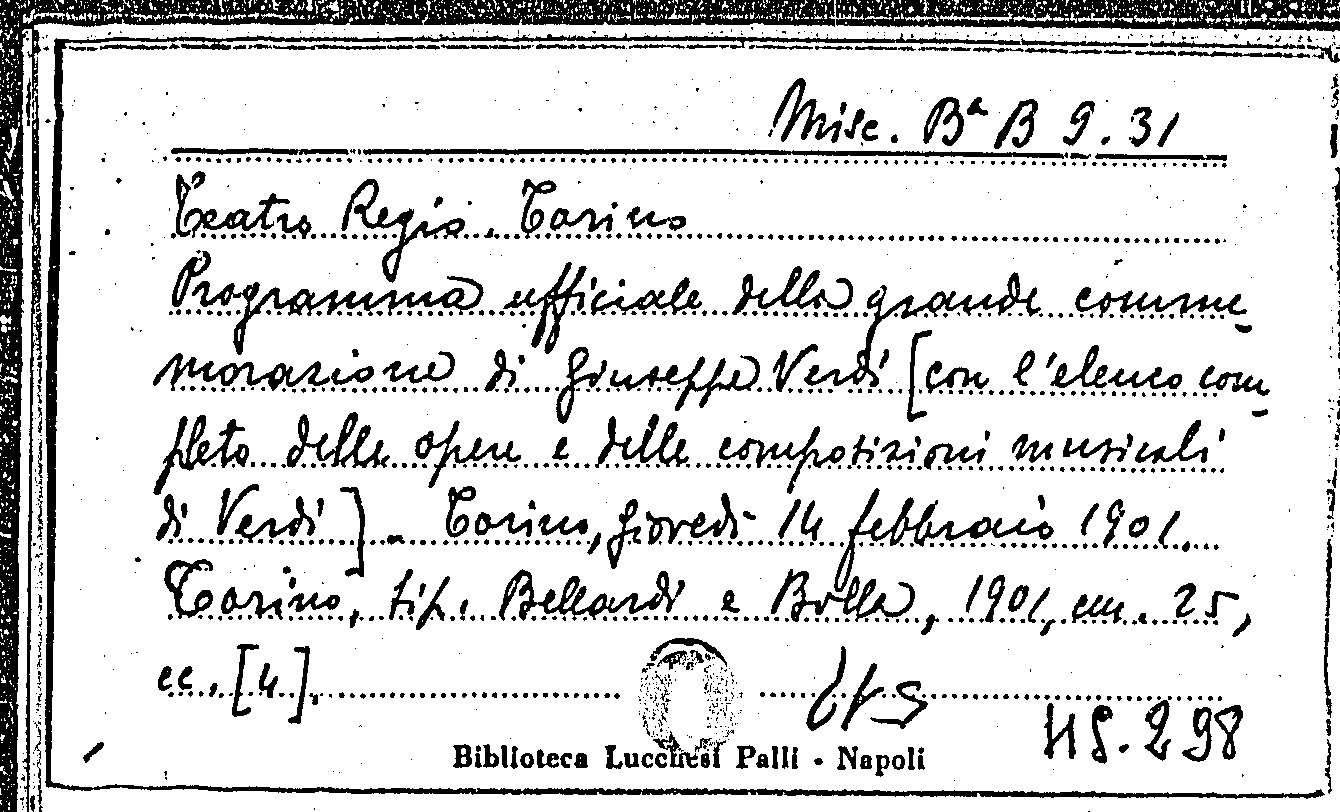 Misc. Bª B 9.31
Teatro Regio. Torino
Programma ufficiale della grande comme-
morazione di Giuseppe Verdi [con l'elenco com-
pleto delle opere e delle composizioni musicali
di Verdi]. Torino, giovedì 14 febbraio 1901.
Torino, tip. Bellardi e Bolla, 1901, cm. 25,
cc. [4].
Biblioteca Lucchesi Palli - Napoli